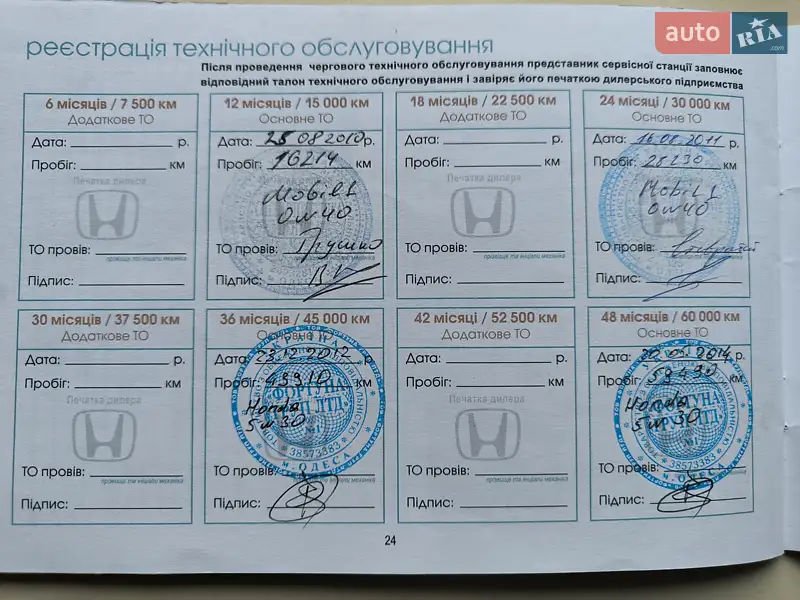 auto RIA .com
реєстрація технічного обслуговування
Після проведення чергового технічного обслуговування представник сервісної станції заповнює
відповідний талон технічного обслуговування і завіряє його печаткою дилерського підприємства
6 місяців / 7 500 км
Додаткове ТО
Дата: р.
Пробіг: км
Печатка дилера
ТО провів:
прізвище та ініціали механіка
Підпис:
12 місяців / 15 000 км
Основне ТО
Дата: 25 08 2010 р.
Пробіг: 16214 км
Mobil 1
0w40
ТО провів: Грушко
Підпис:
18 місяців / 22 500 км
Додаткове ТО
Дата: р.
Пробіг: км
Печатка дилера
ТО провів:
прізвище та ініціали механіка
Підпис:
24 місяці / 30 000 км
Основне ТО
Дата: 16.08.2011 р.
Пробіг: 28230 км
Mobil 1
0w40
ТО провів:
Підпис:
30 місяців / 37 500 км
Додаткове ТО
Дата: р.
Пробіг: км
Печатка дилера
ТО провів:
прізвище та ініціали механіка
Підпис:
36 місяців / 45 000 км
Основне ТО
Дата: 23.12.2012 р.
Пробіг: 43910 км
Honda
5w30
ФОРТУНА
ЛТД
№1
* 38573383 *
м. ОДЕСА
ТО провів:
Підпис:
42 місяці / 52 500 км
Додаткове ТО
Дата: р.
Пробіг: км
Печатка дилера
ТО провів:
прізвище та ініціали механіка
Підпис:
48 місяців / 60 000 км
Основне ТО
Дата: 2014 р.
Пробіг: км
Honda
5w30
38573383
ОДЕСА
ТО провів:
Підпис:
24